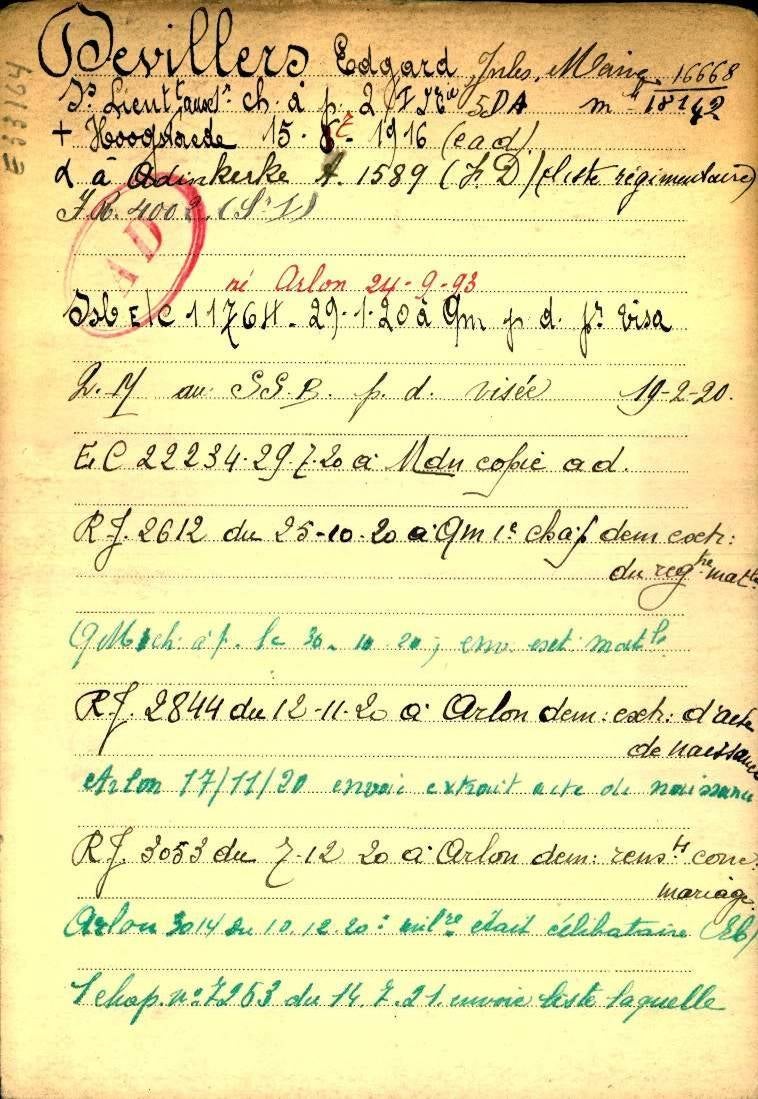 Devillers Edgard Jules, Marie 16668
Lieutt auxre ch. à p. 2 5 DA m 18142
E33164
+ Hoogstade 15 1916 (ead)
à Adinkerke A. 1589 (L D) (liste régimentaire)
J R. 4002
AD
né Arlon 24-9-93
E/C 11764 - 29-1-20 à Qm p d. pr visa
au p. d. visée 19-2-20.
E.C 22234-29.7.20 à Mdn copie a d.
R.J. 2612 du 25-10-20 à Qm 1e chàp dem extr:
du regtre matle
QM 1 ch. à p. le 30-10-20, env. ext. matle
R.J. 2844 du 12-11-20 à Arlon dem: extr: d'acte
de naissance
Arlon 17/11/20 envoi extrait acte de naissance
R.J. 3053 du 7-12 20 à Arlon dem: rensts conc:
mariage.
Arlon 3014 du 10.12.20: milre était célibataire (Eb)
1 chap. n° 7253 du 14.7.21. envoie liste laquelle